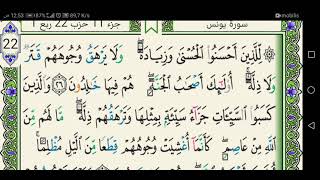 12:53
©mobilis
سورة يونس
جزء 11 حزب 22 ربع 1
22
لِّلَّذِينَ أَحْسَنُوا۟ ٱلْحُسْنَىٰ وَزِيَادَةٌ ۖ وَلَا يَرْهَقُ وُجُوهَهُمْ قَتَرٌ
وَلَا ذِلَّةٌ ۚ أُو۟لَٰٓئِكَ أَصْحَٰبُ ٱلْجَنَّةِ ۖ هُمْ فِيهَا خَٰلِدُونَ ٢٦ وَٱلَّذِينَ
كَسَبُوا۟ ٱلسَّيِّـَٔاتِ جَزَآءُ سَيِّئَةٍۭ بِمِثْلِهَا وَتَرْهَقُهُمْ ذِلَّةٌ ۖ مَّا لَهُم مِّنَ
ٱللَّهِ مِنْ عَاصِمٍ ۖ كَأَنَّمَآ أُغْشِيَتْ وُجُوهُهُمْ قِطَعًا مِّنَ ٱلَّيْلِ مُظْلِمًا ۚ